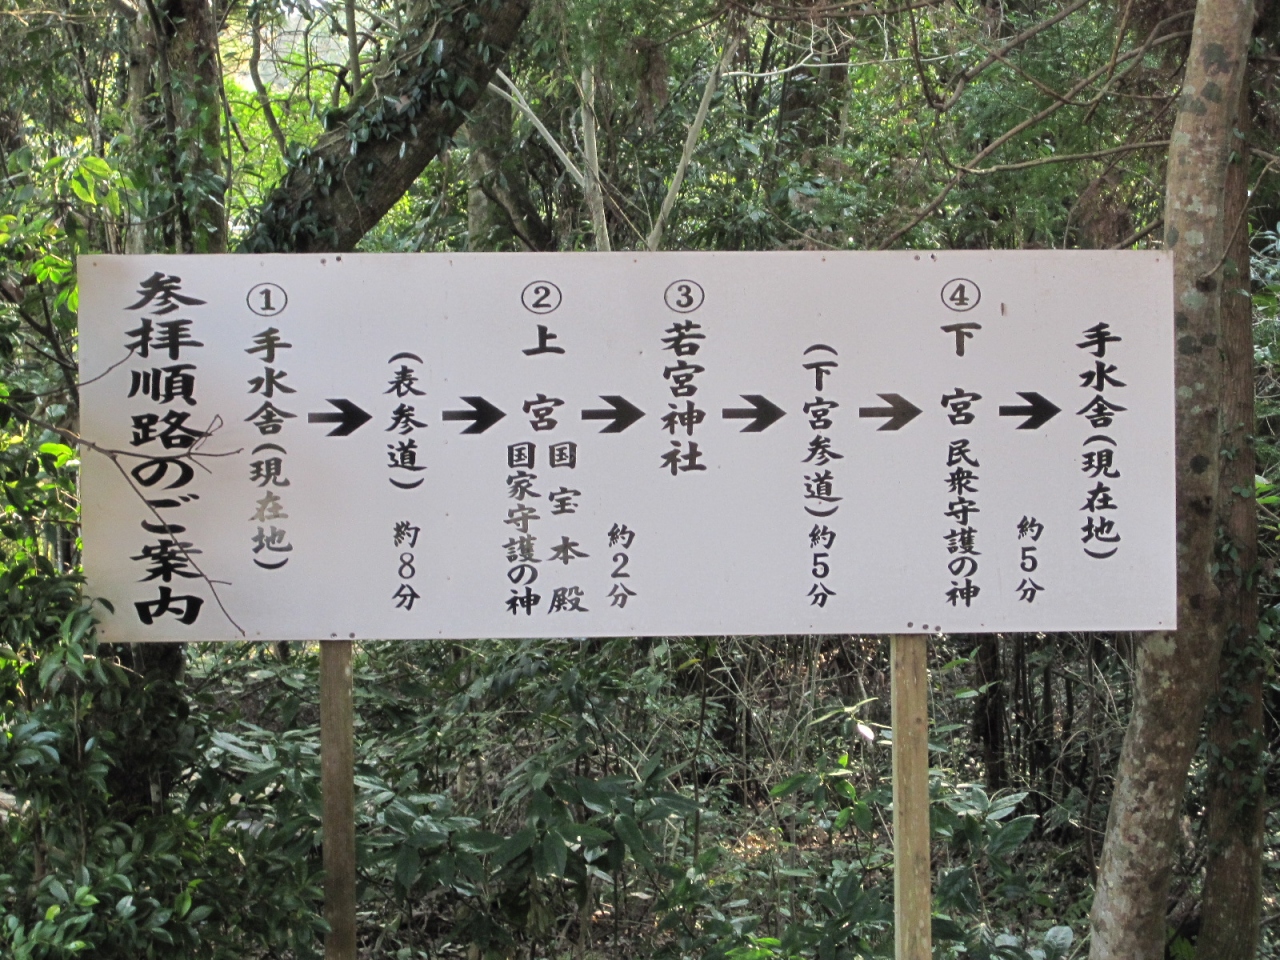 参拝順路のご案内
①
手水舎(現在地)
➔
(表参道) 約8分
➔
②
上 宮
国宝本殿
国家守護の神
➔
約2分
③
若宮神社
➔
(下宮参道)約5分
➔
④
下 宮 民衆守護の神
➔
約5分
手水舎(現在地)